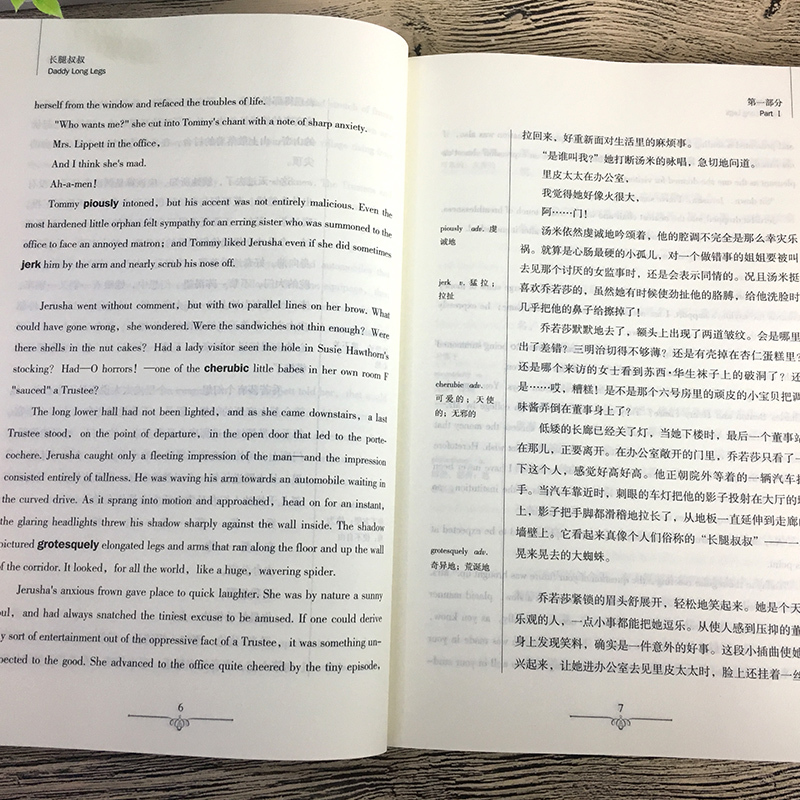 长腿叔叔
Daddy Long Legs
herself from the window and refaced the troubles of life.
"Who wants me?" she cut into Tommy's chant with a note of sharp anxiety.
Mrs. Lippett in the office,
And I think she's mad.
Ah-a-men!
Tommy piously intoned, but his accent was not entirely malicious. Even the
most hardened little orphan felt sympathy for an erring sister who was summoned to the
office to face an annoyed matron; and Tommy liked Jerusha even if she did sometimes
jerk him by the arm and nearly scrub his nose off.
Jerusha went without comment, but with two parallel lines on her brow. What
could have gone wrong, she wondered. Were the sandwiches not thin enough? Were
there shells in the nut cakes? Had a lady visitor seen the hole in Susie Hawthorn's
stocking? Had—O horrors! —one of the cherubic little babes in her own room F
"sauced" a Trustee?
The long lower hall had not been lighted, and as she came downstairs, a last
Trustee stood, on the point of departure, in the open door that led to the porte-
cochere. Jerusha caught only a fleeting impression of the man—and the impression
consisted entirely of tallness. He was waving his arm towards an automobile waiting in
the curved drive. As it sprang into motion and approached, head on for an instant,
the glaring headlights threw his shadow sharply against the wall inside. The shadow
pictured grotesquely elongated legs and arms that ran along the floor and up the wall
of the corridor. It looked, for all the world, like a huge, wavering spider.
Jerusha's anxious frown gave place to quick laughter. She was by nature a sunny
oul, and had always snatched the tiniest excuse to be amused. If one could derive
y sort of entertainment out of the oppressive fact of a Trustee, it was something un-
pected to the good. She advanced to the office quite cheered by the tiny episode,
6
第一部分
Part Ⅰ
拉回来，好重新面对生活里的麻烦事。
“是谁叫我？”她打断汤米的咏唱，急切地问道。
里皮太太在办公室、
我觉得她好像火很大、
阿……门！
piously adv. 虔
诚地
汤米依然虔诚地吟颂着，他的腔调不完全是那么幸灾乐
祸。就算是心肠最硬的小孤儿，对一个做错事的姐姐要被叫
去见那个讨厌的女监事时，还是会表示同情的。况且汤米挺
jerk v. 猛拉；
拉扯
喜欢乔若莎的，虽然她有时候使劲扯他的胳膊，给他洗脸时
几乎把他的鼻子给擦掉了！
乔若莎默默地去了，额头上出现了两道皱纹。会是哪里
出了差错？三明治切得不够薄？还是有壳掉在杏仁蛋糕里？
还是哪个来访的女士看到苏西·华生袜子上的破洞了？还
cherubic adv.
可爱的；天使
的；无邪的
是……哎，糟糕！是不是那个六号房里的顽皮的小宝贝把调
味酱弄倒在董事身上了？
低矮的长廊已经关了灯，当她下楼时，最后一个董事站
在那儿，正要离开。在办公室敞开的门里，乔若莎只看了一
下这个人，感觉好高好高。他正朝院外等着的一辆汽车招
手。当汽车靠近时，刺眼的车灯把他的影子投射在大厅的
上，影子把手脚都滑稽地拉长了，从地板一直延伸到走廊
grotesquely adv.
奇异地；荒诞地
墙壁上。它看起来真像个人们俗称的“长腿叔叔”——
晃来晃去的大蜘蛛。
乔若莎紧锁的眉头舒展开，轻松地笑起来。她是个天
乐观的人，一点小事都能把她逗乐。从使人感到压抑的董
身上发现笑料，确实是一件意外的好事。这段小插曲使她
兴起来，让她进办公室去见里皮太太时，脸上还挂着一丝
7